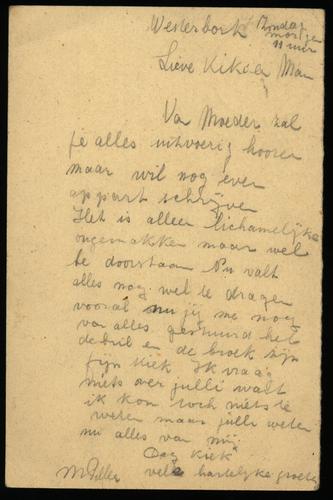 Westerbork Zondag
morgen
11 uur
Lieve Kikie Man
Van Moeder zal
je alles uitvoerig hooren
maar wil nog even
appart schrijve
Het is alleen lichamelijke
ongemakken maar wel
te doorstaan Nu valt
alles nog wel te dragen
vooral nu jij me nog
van alles gestuurd het
de bril en de broek zijn
fijn Kiek Ik vraag
niets over jullie want
ik kom toch niets te
weten maar jullie weten
nu alles van mij
Dag Kiek
vele hartelijke groete